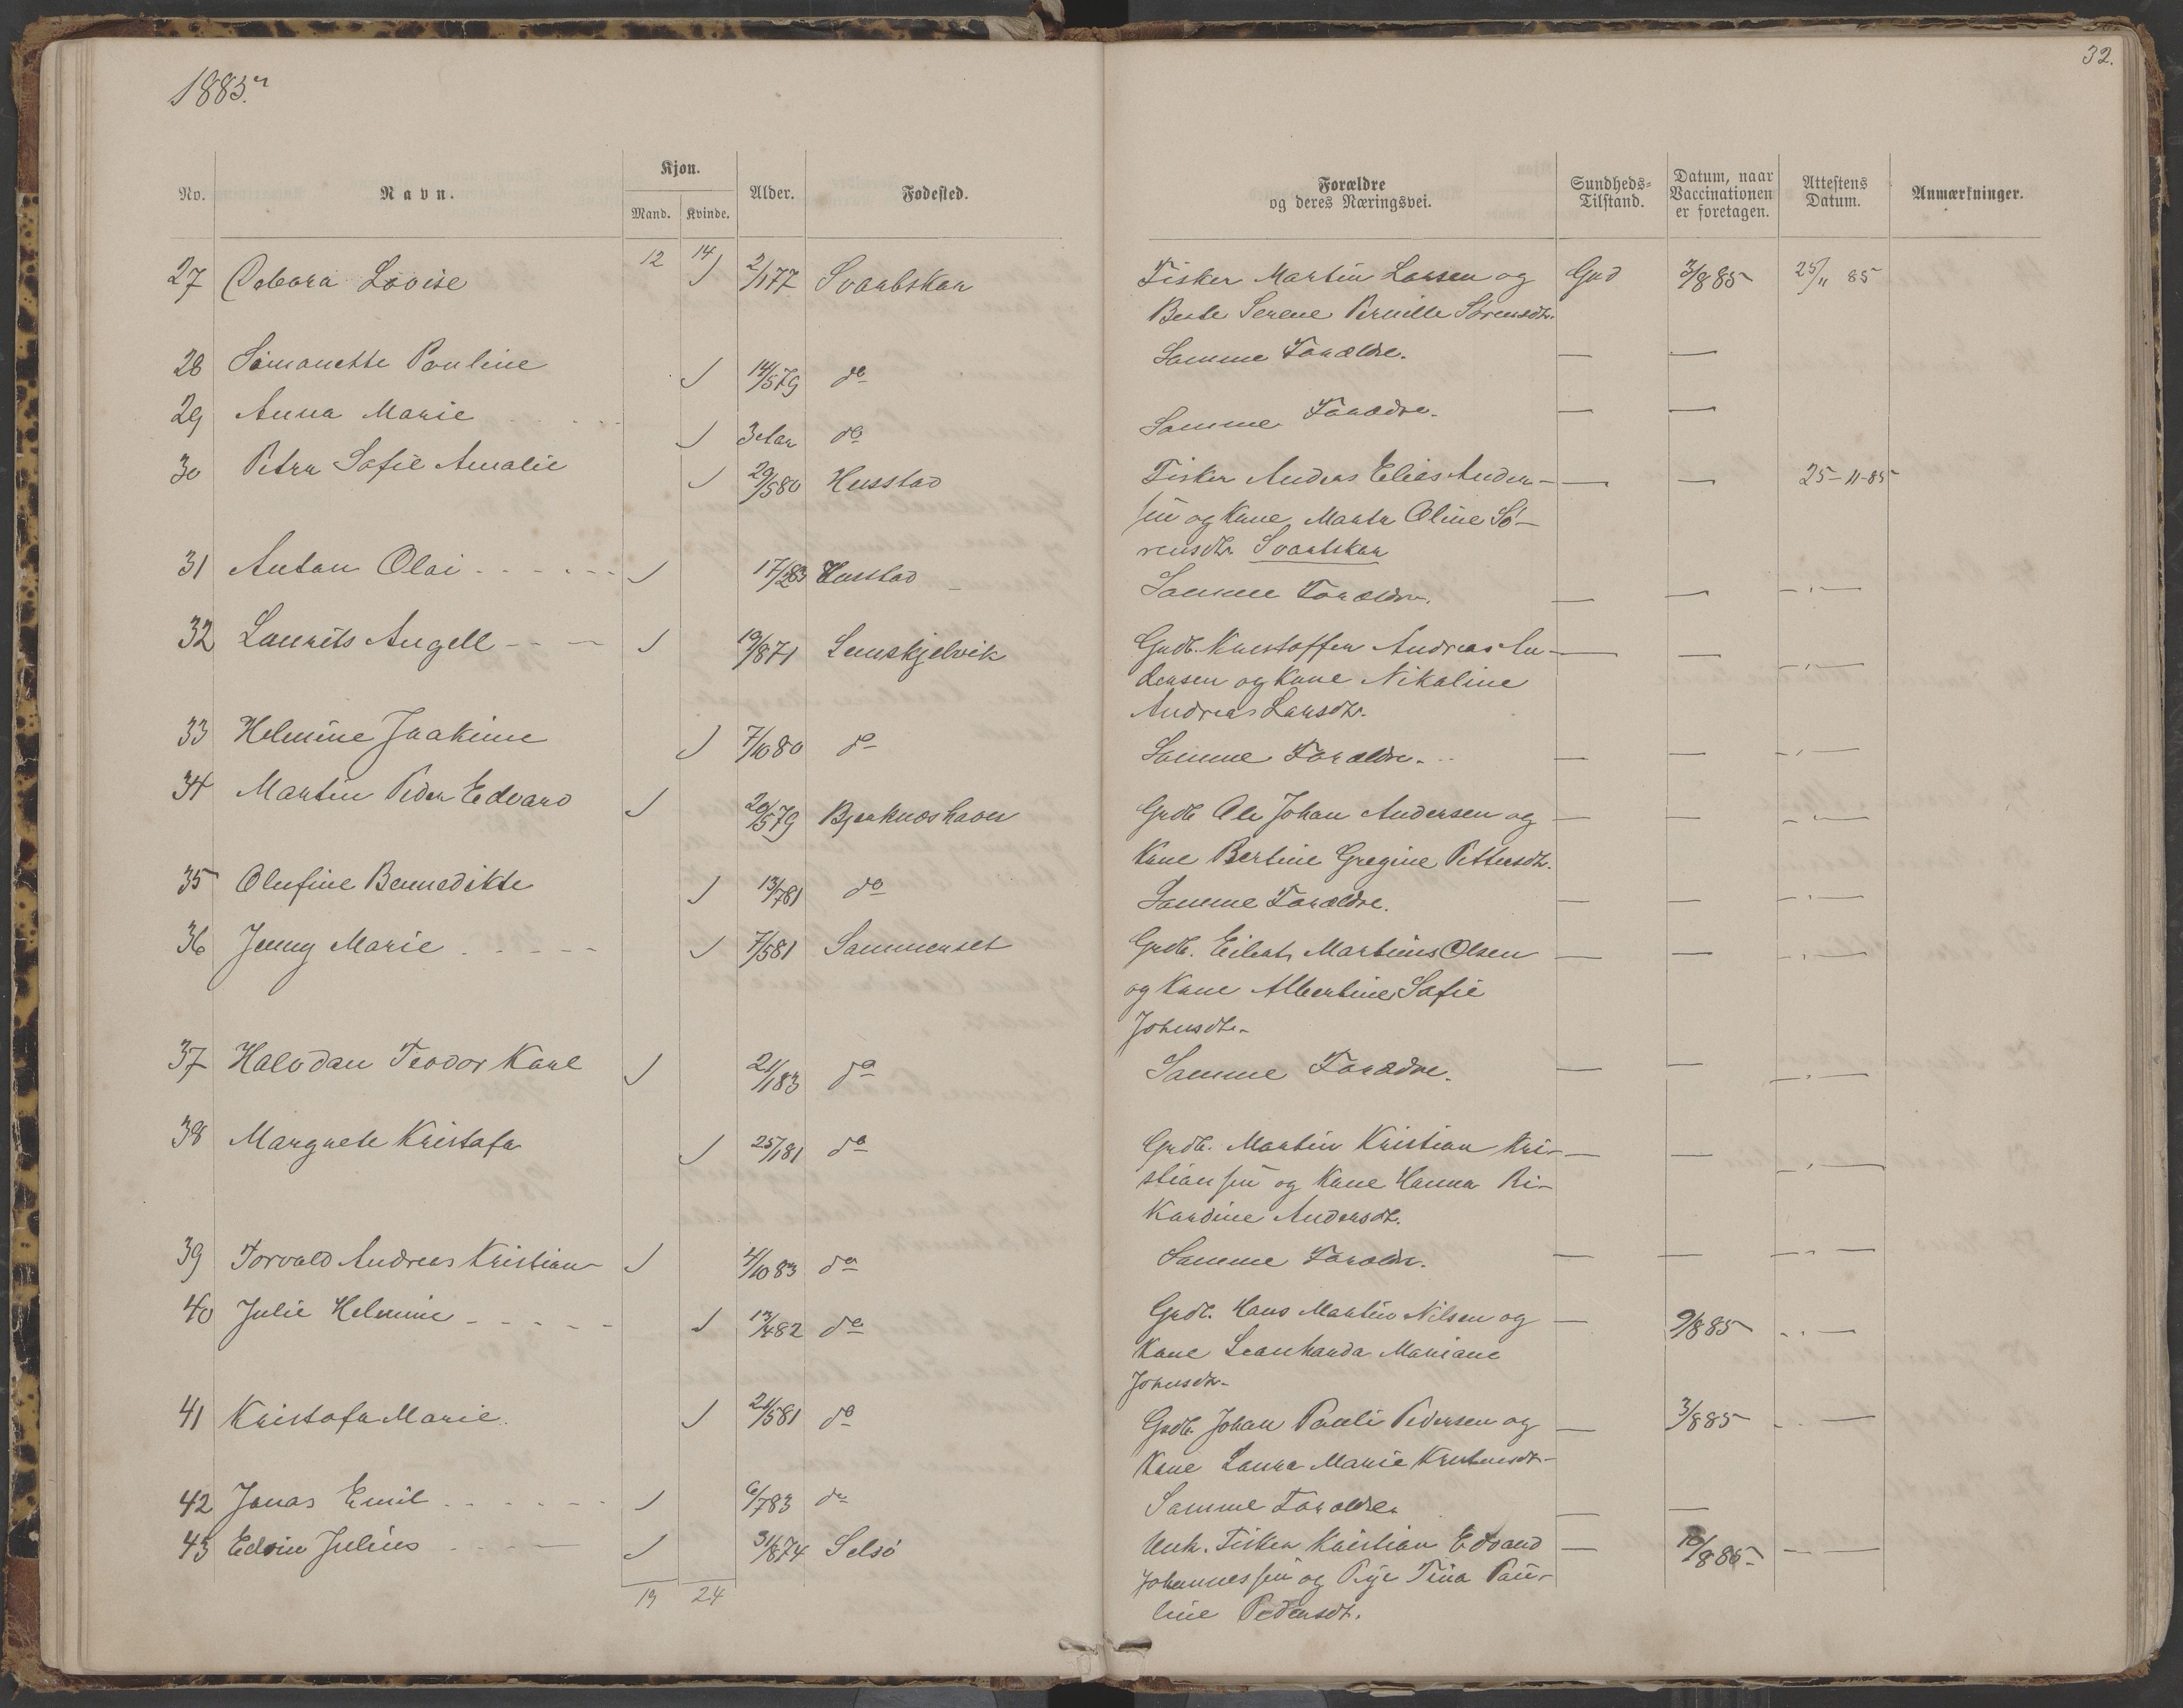 1885.
32.
No. Navn. Kjøn. Mand. Kvinde. Alder. Fødested.
Forældre og deres Næringsvei. Sundheds-Tilstand. Datum, naar Vaccinationen er foretagen. Attestens Datum. Anmærkninger.
12 14
27 Debora Lovise 2/1 77 Svartskar Fisker Martin Larsen og Gud 3/8 85 25/11 85
Serene Pernille Sørensdtr.
28 Simonette Pauline 14/5 79 do Samme Forældre. — —
29 Anna Marie 3 Aar do Samme Forældre. — —
30 Petra Sofie Amalie 29/5 80 Husstad Fisker Anders Elias Ander- — — 25-11-85
sen og Kone Marta Oline Sø-
rensdtr. Svartskar
31 Anton Olai 17/2 83 Husstad Samme Forældre. — — —
32 Laurits Angell 19/8 71 Lemskjelvik Grdb. Kristoffer Andreas An- — — —
dersen og Kone Nikoline
Andrea Larsdtr.
33 Helmine Joakime 7/10 80 do Samme Forældre. — — —
34 Martin Peder Edvard 20/5 79 Bjerknæshaven Grdb Ole Johan Andersen og — — —
Kone Bertine Gregine Pettersdtr.
35 Olufine Bennedikte 13/7 81 do Samme Forældre. — — —
36 Jenny Marie 7/5 81 Sammenset Grdb. Eilert Martinus Olsen — — —
og Kone Albertine Sofie
Johnsdtr.
37 Halvdan Teodor Karl 21/1 83 do Samme Forældre. — — —
38 Margrete Kristofa 25/1 81 do Grdb. Martin Kristian Kri- — — —
stiansen og Kone Hanna Ri-
kardine Andersdtr.
39 Torvald Andreas Kristian 4/10 83 do Samme Forældr. — — —
40 Julie Helmine 13/4 82 do Grdb. Hans Martin Nilsen og — 9/8 85 —
Kone Leonharda Mariane
Johnsdtr.
41 Kristofa Marie. 21/5 81 do Grdb. Johan Pauli Pedersen og — 3/8 85 —
Kone Laura Marie
42 Jonas Emil 6/7 83 do Samme Forældre — —
43 Edvin Julius 31/8 74 Selsø Unk. Fisker Kristian Edvard — 10/8 85 —
Johannessen og Pige Tina Pau-
line Pedersdt.
19 24